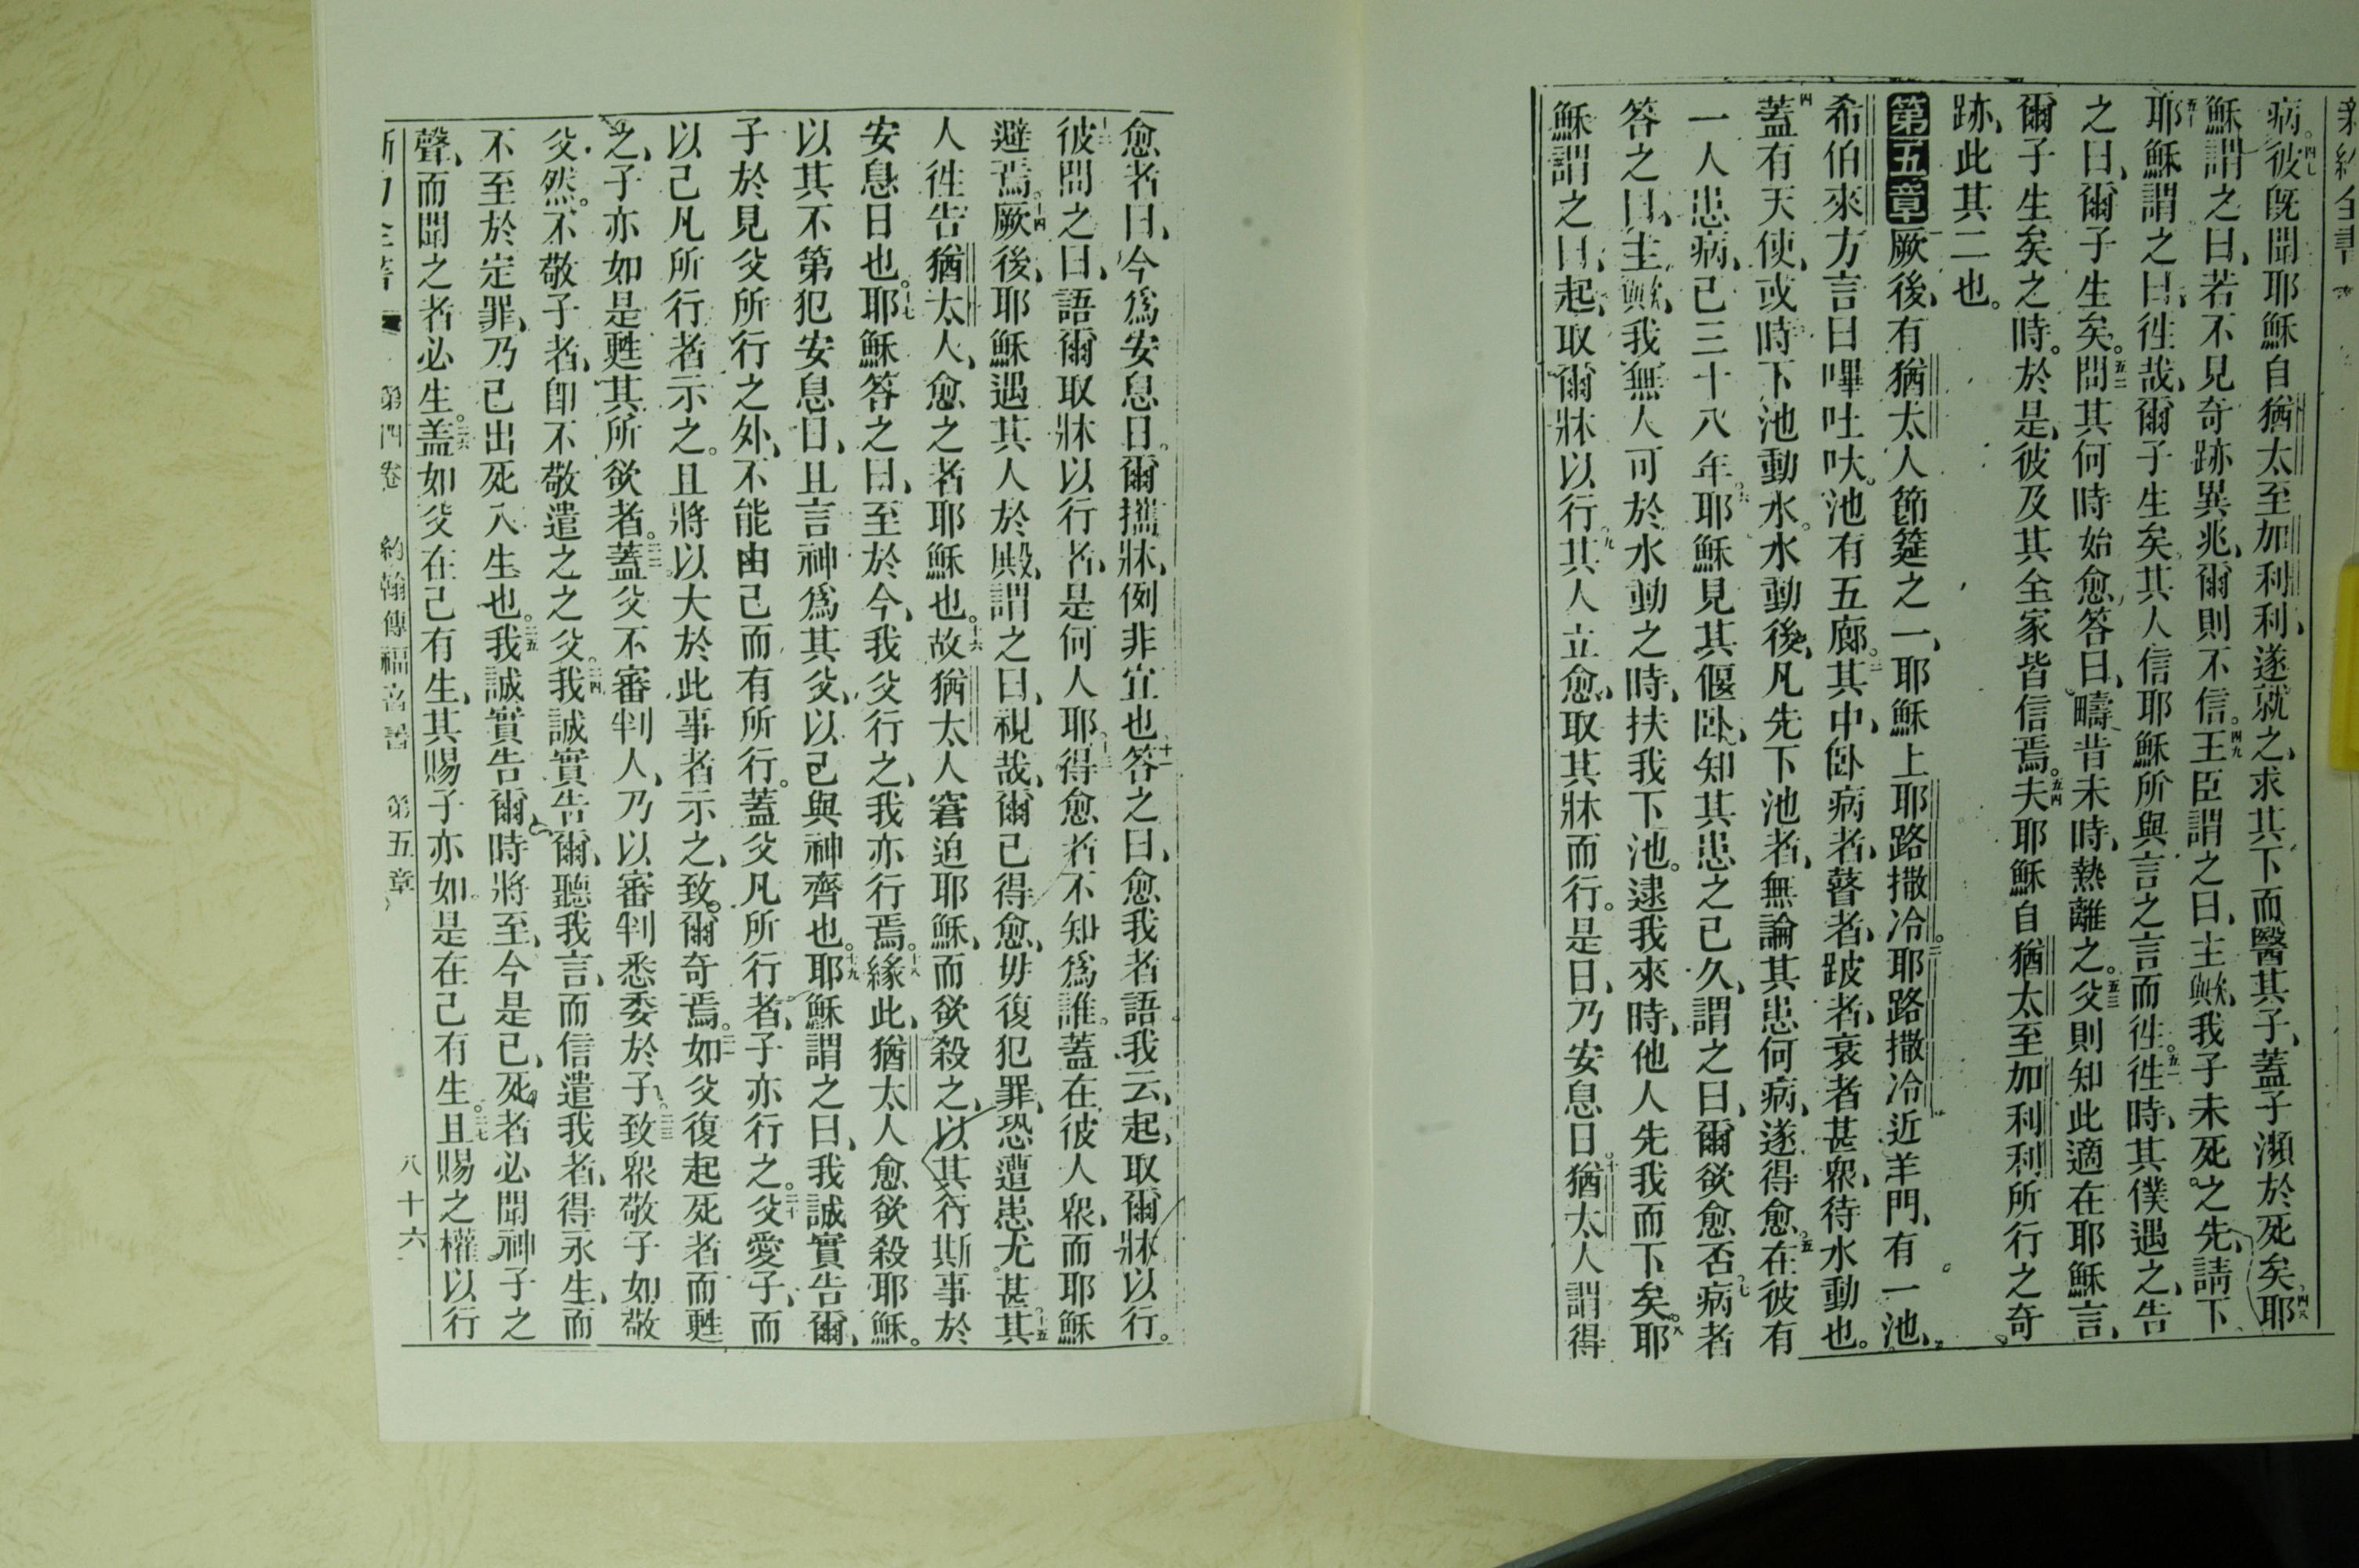 新約全書
病。四七彼旣聞耶穌自猶太至加利利、遂就之、求其下而醫其子、蓋子瀕於死矣。四八耶
穌謂之曰、若不見奇跡異兆、爾則不信。四九王臣謂之曰、主歟、我子未死之先、請下。
五十耶穌謂之曰、徃哉、爾子生矣。其人信耶穌所與言之言而徃。五一徃時、其僕遇之、告
之曰、爾子生矣。五二問其何時始愈、答曰、疇昔未時、熱離之。五三父則知此適在耶穌言、
爾子生矣之時。於是、彼及其全家皆信焉。五四夫耶穌自猶太至加利利所行之奇
跡、此其二也。
第五章厥後、有猶太人節筵之一、耶穌上耶路撒冷。二耶路撒冷近羊門、有一池、
希伯來方言曰嗶吐吠。池有五廊。三其中、卧病者、瞽者、跛者、衰者甚衆、待水動也。
四蓋有天使、或時下池動水。水動後、凡先下池者、無論其患何病、遂得愈。五在彼有
一人患病、已三十八年。六耶穌見其偃卧、知其患之已久、謂之曰、爾欲愈否。七病者
答之曰、主歟、我無人可於水動之時、扶我下池。逮我來時、他人先我而下矣。八耶
穌謂之曰、起、取爾牀以行。九其人立愈、取其牀而行。是日、乃安息日。十猶太人謂得
愈者曰、今爲安息日。爾攜牀、例非宜也。十一答之曰、愈我者語我云、起、取爾牀以行。
十二彼問之曰、語爾取牀以行者、是何人耶。十三得愈者不知爲誰。蓋在彼人衆、而耶穌
避焉。十四厥後、耶穌遇其人於殿、謂之曰、視哉、爾已得愈、毋復犯罪、恐遭患尤甚。十五其
人徃告猶太人、愈之者耶穌也。十六故猶太人窘迫耶穌、而欲殺之、以其行斯事於
安息日也。十七耶穌答之曰、至於今、我父行之、我亦行焉。十八緣此、猶太人愈欲殺耶穌。
以其不第犯安息日、且言神爲其父、以己與神齊也。十九耶穌謂之曰、我誠實告爾、
子於見父所行之外、不能由己而有所行。蓋父凡所行者、子亦行之。二十父愛子、而
以己凡所行者示之。且將以大於此事者示之、致爾奇焉。二一如父復起死者而甦
之、子亦如是甦其所欲者。二二蓋父不審判人、乃以審判悉委於子。二三致衆敬子如敬
父然。不敬子者、卽不敬遣之之父。二四我誠實告爾、聽我言、而信遣我者、得永生、而
不至於定罪、乃已出死入生也。二五我誠實告爾、時將至、今是已、死者必聞神子之
聲、而聞之者必生。二六蓋如父在己有生、其賜子亦如是在己有生。二七且賜之權以行
第四卷 約翰傳福音書 第五章 八十六